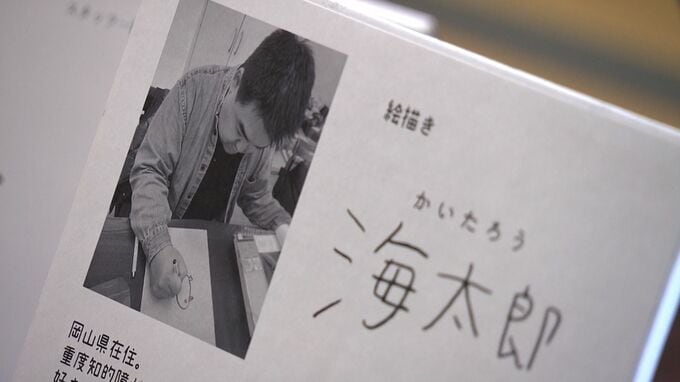 絵描き
かいたろう
海太郎
岡山県在住。
重度知的障
好